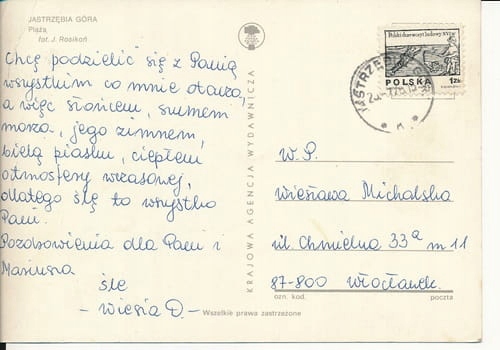 JASTRZĘBIA GÓRA
Plaża
fot. J. Rosikoń
Chcę podzielić się z Panią
wszystkim co mnie otacza,
a więc słońcem, szumem
morza, jego zimnem,
bielą piasku, ciepłem
atmosfery wczasowej,
dlatego ślę to wszystko
Pani.
Pozdrowienia dla Pani i
Mariusza
śle
- Wiesia D. -
KRAJOWA AGENCJA WYDAWNICZA
Polski drzeworyt ludowy XVI w.
POLSKA 1 ZŁ
JASTRZĘBIA
W.P.
Wiesława Michalska
ul. Chmielna 33a m 11
87-800 Włocławek.
ozn. kod. poczta
Wszelkie prawa zastrzeżone